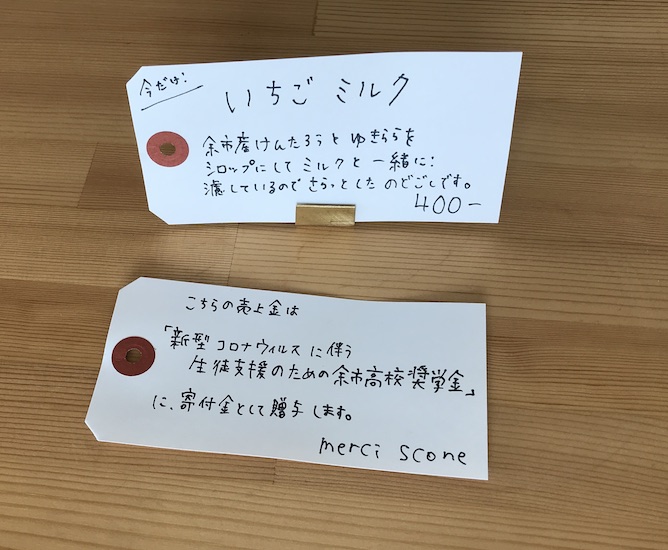 今だけ!
いちごミルク
余市産けんたろうとゆきららを
シロップにしてミルクと一緒に!
濾しているのでさらっとしたのどごしです。
400-
こちらの売上金は
「新型コロナウィルスに伴う
生徒支援のための余市高校奨学金」
に、寄付金として贈与します。
merci scone